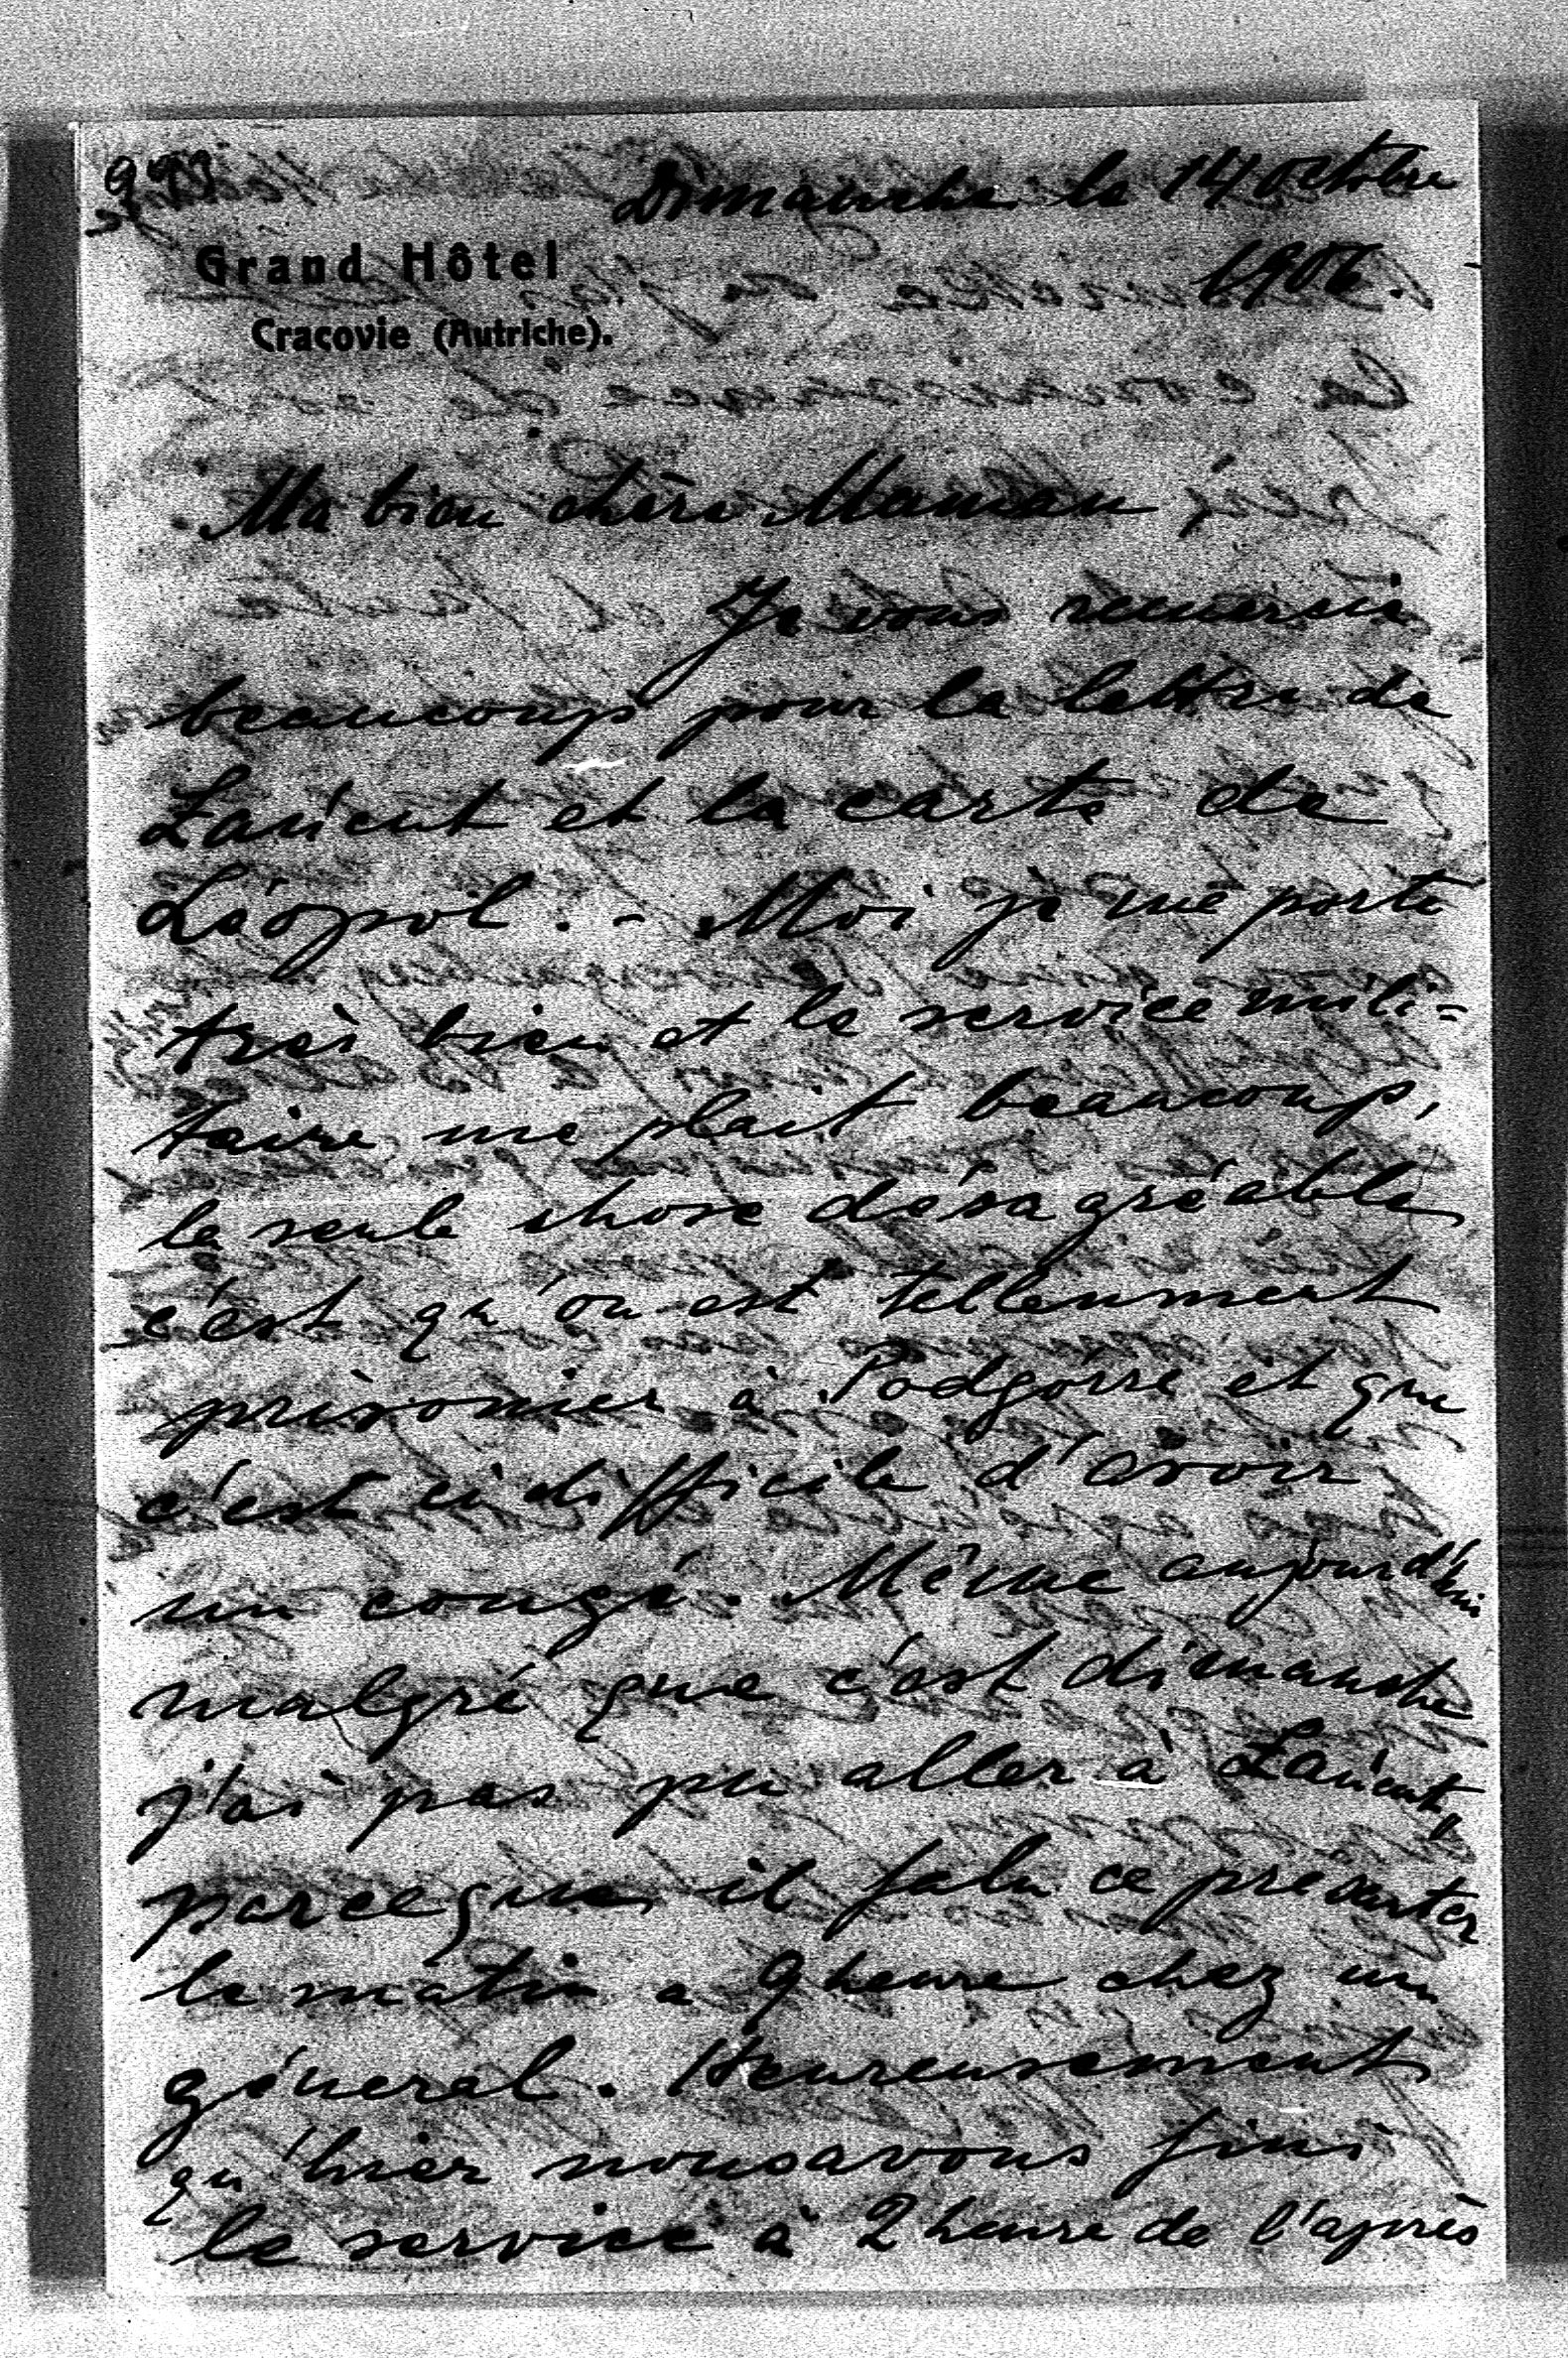 Dimanche le 14 octobre
Grand Hôtel
1906.
Cracovie (Autriche).
Ma bien chère Maman
Je vous remercie
beaucoup pour la lettre de
Łańcut et la carte de
Léopol. - Moi je me porte
très bien et le service mili=
taire me plait beaucoup,
la seule chose désagréable
c'est qu'on est tellemment
prisonier à Podgórze et que
c'est si difficile d'avoir
un congé. Même aujourd'hui
malgré que c'est dimanche
j'ai pas pu aller à Łańcut,
parceque il falu ce présenter
le matin a 9 heure chez un
géneral. Heureusement
qu'hier nousavons fini
le service à 2 heure de l'après